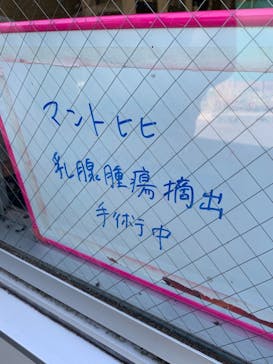 マントヒヒ
乳腺腫瘍摘出
手術中